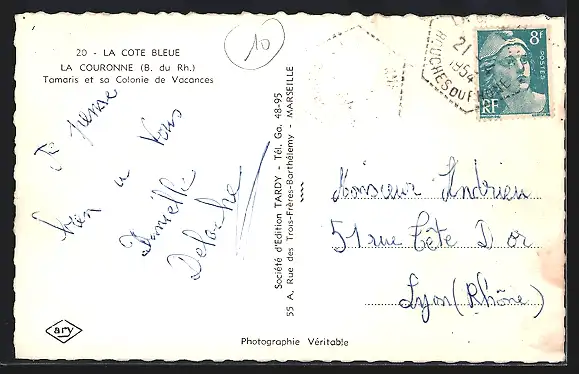 20 - LA COTE BLEUE
LA COURONNE (B. du Rh.)
Tamaris et sa Colonie de Vacances
10
Je pense
bien à Vous
Danielle
Deloche
ary
Société d'Edition TARDY - Tél. Ga. 48-95
55 A, Rue des Trois-Frères-Barthélemy - MARSEILLE
Photographie Véritable
21
1954
BOUCHES DU RHÔNE
8F
POSTES
RF
Monsieur Andrieu
51 rue Tête D'or
Lyon (Rhône)